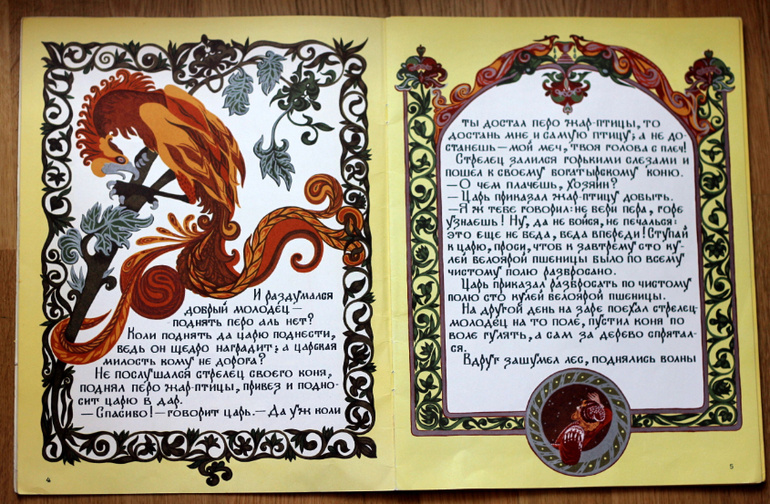 И раздумался
добрый молодец —
поднять перо аль нет?
Коли поднять да царю поднести,
ведь он щедро наградит; а царская
милость кому не дорога?
Не послушался стрелец своего коня,
поднял перо жар-птицы, привез и подно-
сит царю в дар.
— Спасибо! — говорит царь. — Да уж коли
4
ты достал перо жар-птицы, то
достань мне и самую птицу; а не до-
станешь — мой меч, твоя голова с плеч!
Стрелец залился горькими слезами и
пошел к своему богатырскому коню.
— О чем плачешь, хозяин?
— Царь приказал жар-птицу добыть.
— Я ж тебе говорил: не бери пера, горе
узнаешь! Ну, да не бойся, не печалься:
это еще не беда, беда впереди! Ступай
к царю, проси, чтоб к завтрему сто ку-
лей белоярой пшеницы было по всему
чистому полю разбросано.
Царь приказал разбросать по чистому
полю сто кулей белоярой пшеницы.
На другой день на заре поехал стрелец-
молодец на то поле, пустил коня по
воле гулять, а сам за дерево спрятал-
ся.
Вдруг зашумел лес, поднялись волны
5